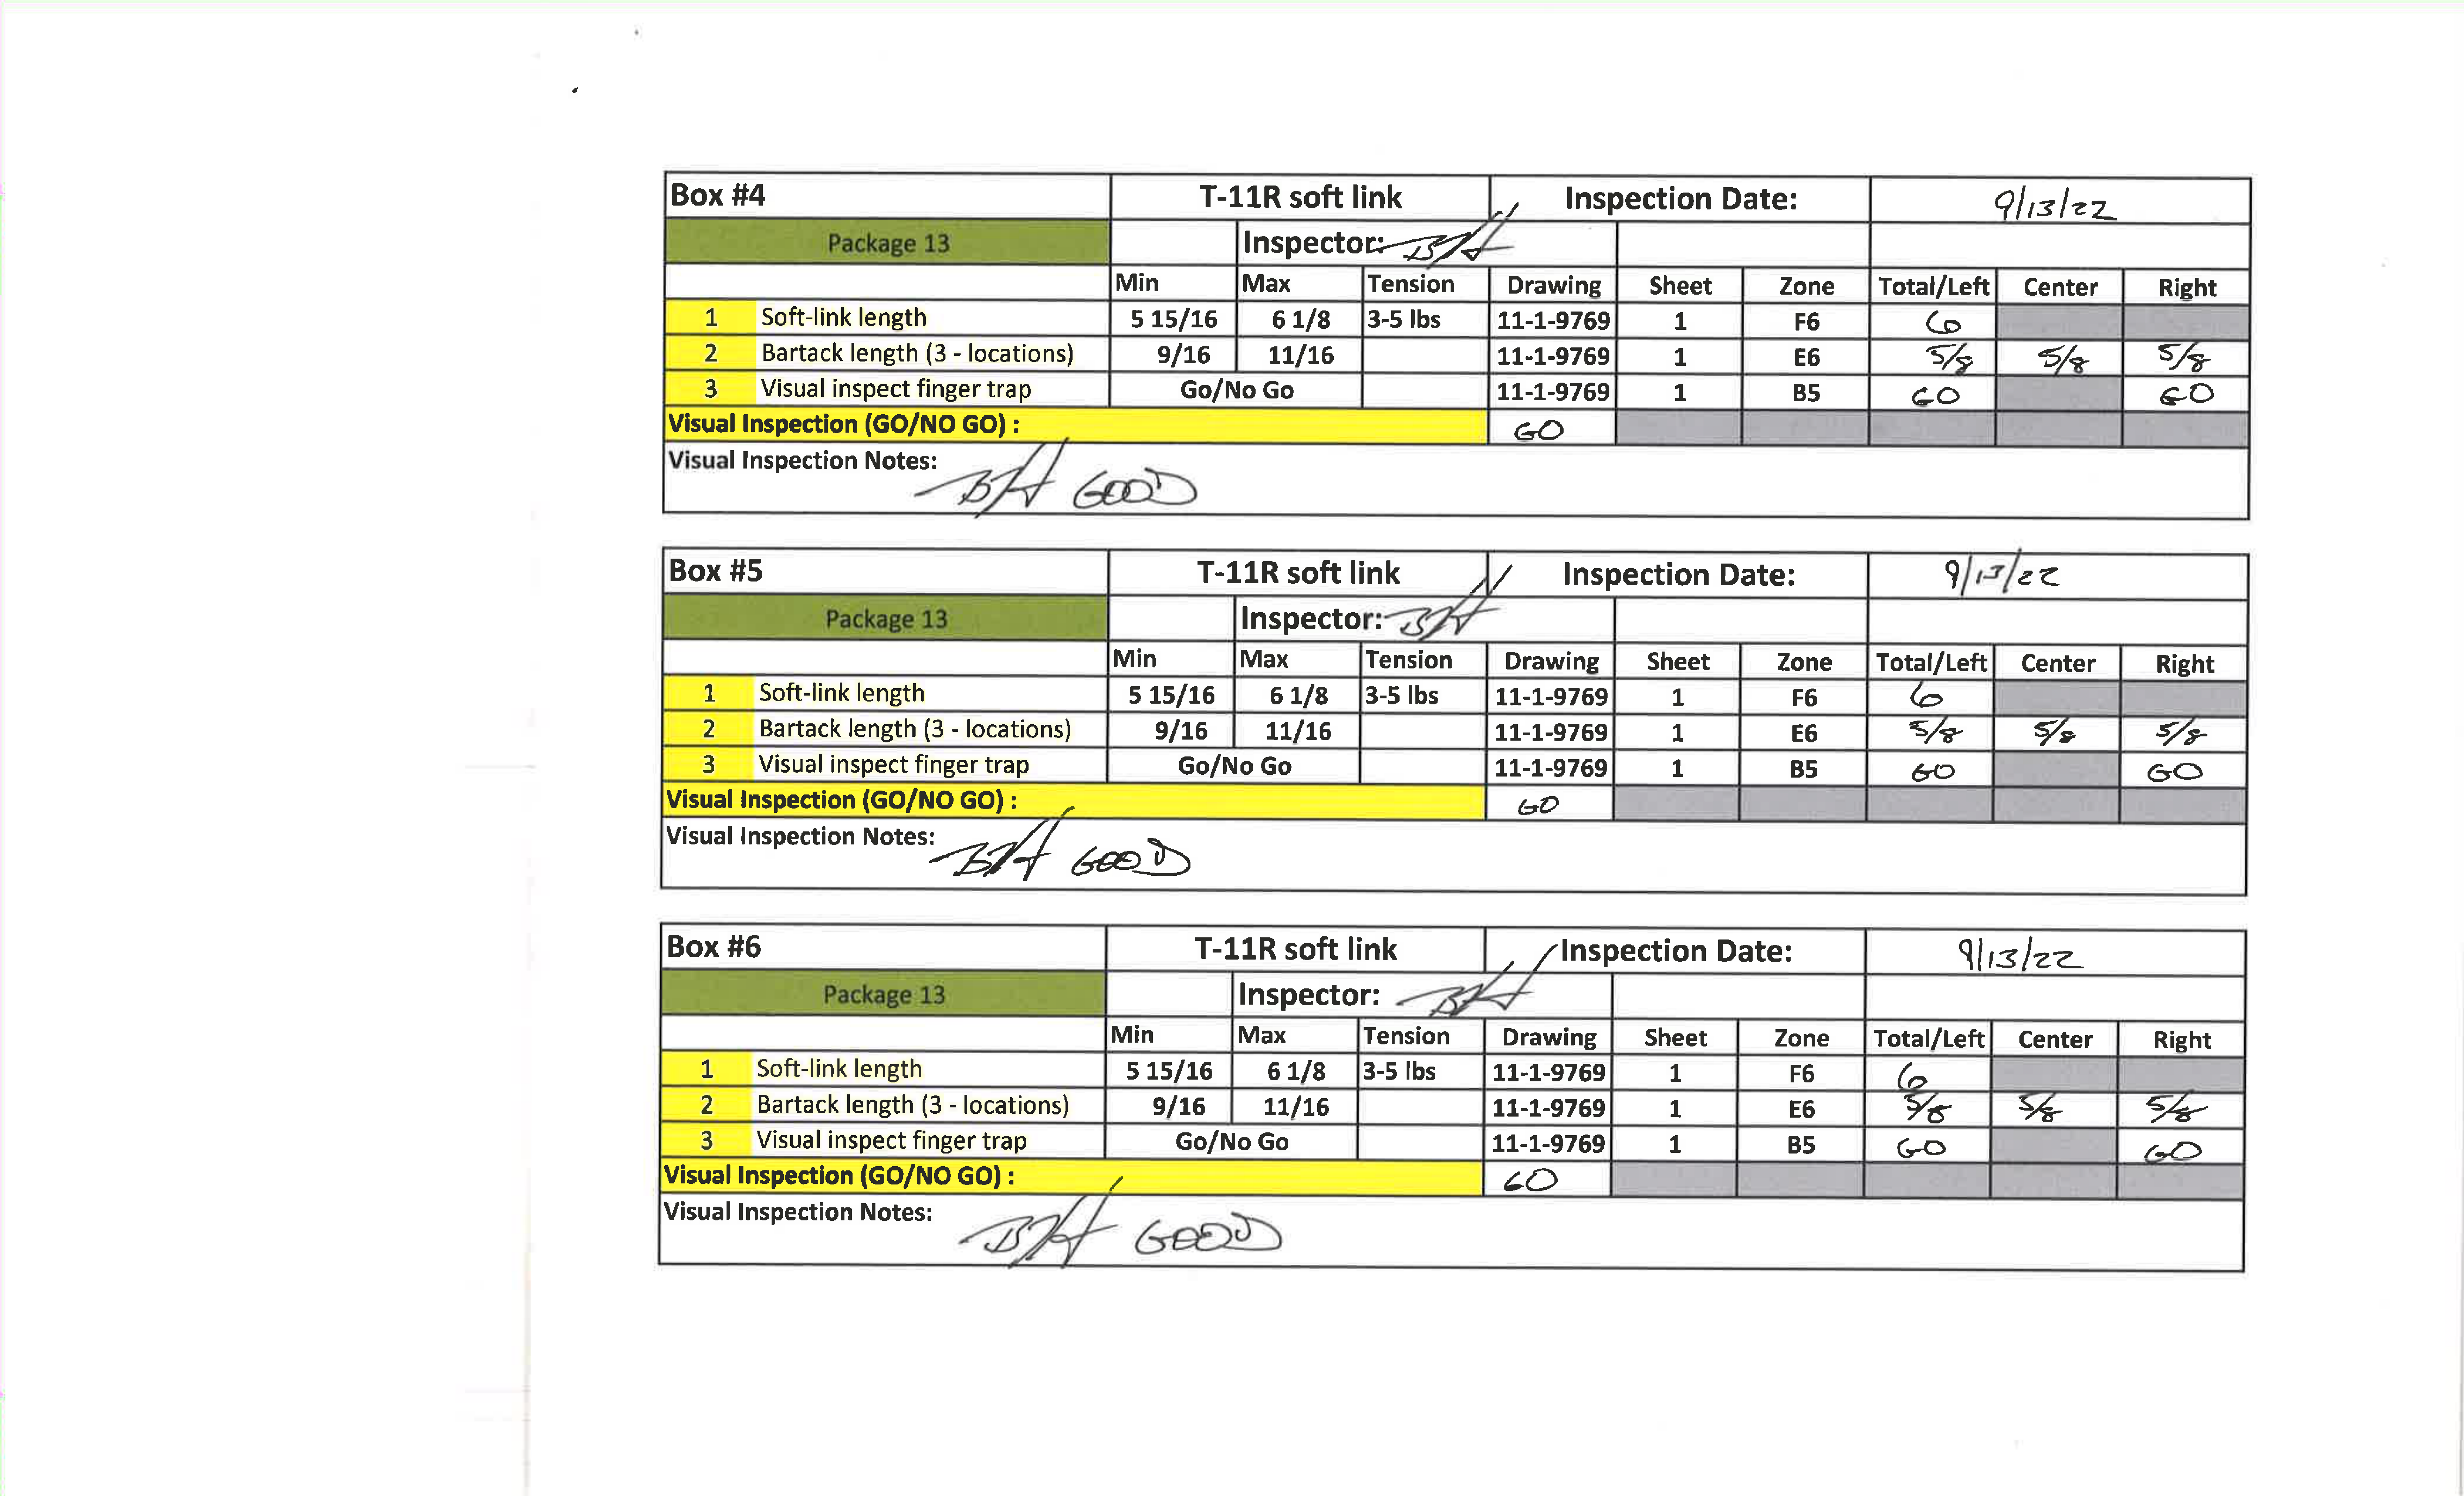 Box #4 T-11R soft link Inspection Date: 9/13/22
Package 13 Inspector: BH
Min Max Tension Drawing Sheet Zone Total/Left Center Right
1 Soft-link length 5 15/16 6 1/8 3-5 lbs 11-1-9769 1 F6 6
2 Bartack length (3 - locations) 9/16 11/16 11-1-9769 1 E6 5/8 5/8 5/8
3 Visual inspect finger trap Go/No Go 11-1-9769 1 B5 GO GO
Visual Inspection (GO/NO GO) : GO
Visual Inspection Notes: BH GOOD
Box #5 T-11R soft link Inspection Date: 9/13/22
Package 13 Inspector: BH
Min Max Tension Drawing Sheet Zone Total/Left Center Right
1 Soft-link length 5 15/16 6 1/8 3-5 lbs 11-1-9769 1 F6 6
2 Bartack length (3 - locations) 9/16 11/16 11-1-9769 1 E6 5/8 5/8 5/8
3 Visual inspect finger trap Go/No Go 11-1-9769 1 B5 GO GO
Visual Inspection (GO/NO GO) : GO
Visual Inspection Notes: BH GOOD
Box #6 T-11R soft link Inspection Date: 9/13/22
Package 13 Inspector: BH
Min Max Tension Drawing Sheet Zone Total/Left Center Right
1 Soft-link length 5 15/16 6 1/8 3-5 lbs 11-1-9769 1 F6 6
2 Bartack length (3 - locations) 9/16 11/16 11-1-9769 1 E6 5/8 5/8 5/8
3 Visual inspect finger trap Go/No Go 11-1-9769 1 B5 GO GO
Visual Inspection (GO/NO GO) : GO
Visual Inspection Notes: BH GOOD